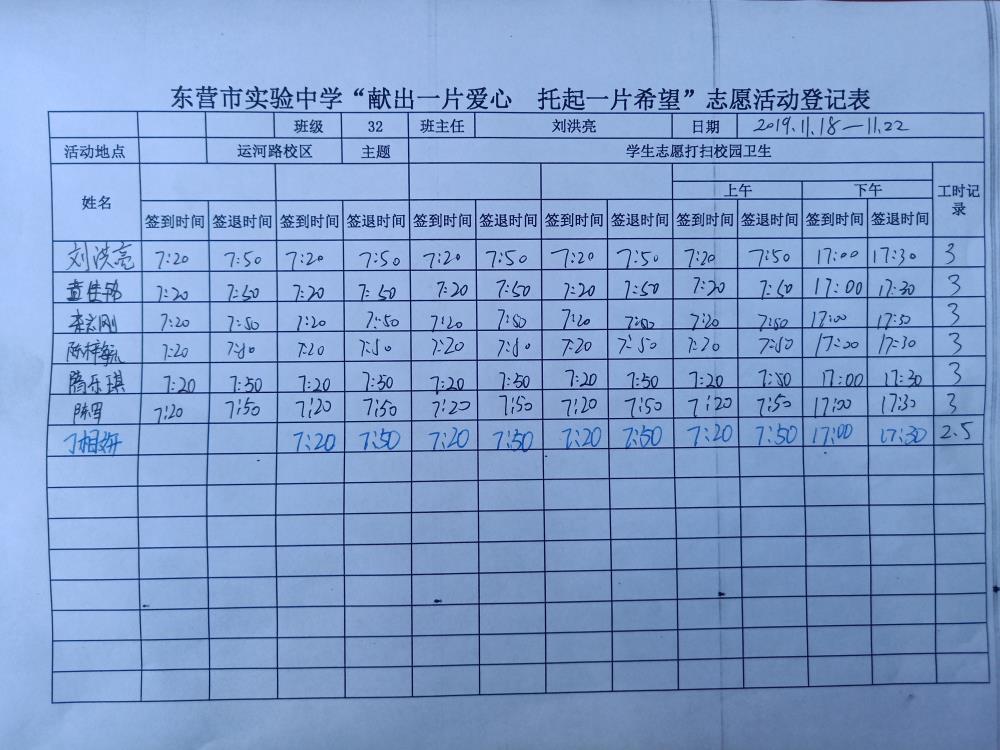 东营市实验中学“献出一片爱心 托起一片希望”志愿活动登记表
班级 32 班主任 刘洪亮 日期 2019.11.18—11.22
活动地点 运河路校区 主题 学生志愿打扫校园卫生
姓名 上午 下午 工时记录
签到时间 签退时间 签到时间 签退时间 签到时间 签退时间 签到时间 签退时间 签到时间 签退时间 签到时间 签退时间
刘洪亮 7:20 7:50 7:20 7:50 7:20 7:50 7:20 7:50 7:20 7:50 17:00 17:30 3
7:20 7:50 7:20 7:50 7:20 7:50 7:20 7:50 7:20 7:50 17:00 17:30 3
7:20 7:50 7:20 7:50 7:20 7:50 7:20 7:50 7:20 7:50 17:00 17:30 3
7:20 7:50 7:20 7:50 7:20 7:50 7:20 7:50 7:20 7:50 17:00 17:30 3
7:20 7:50 7:20 7:50 7:20 7:50 7:20 7:50 7:20 7:50 17:00 17:30 3
7:20 7:50 7:20 7:50 7:20 7:50 7:20 7:50 7:20 7:50 17:00 17:30 3
7:20 7:50 7:20 7:50 7:20 7:50 7:20 7:50 17:00 17:30 2.5